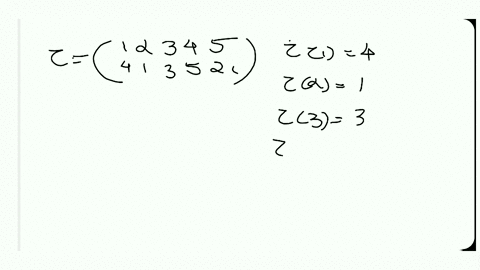 τ = ( 1 2 3 4 5
4 1 3 5 2 )
τ(1) = 4
τ(2) = 1
τ(3) = 3
τ